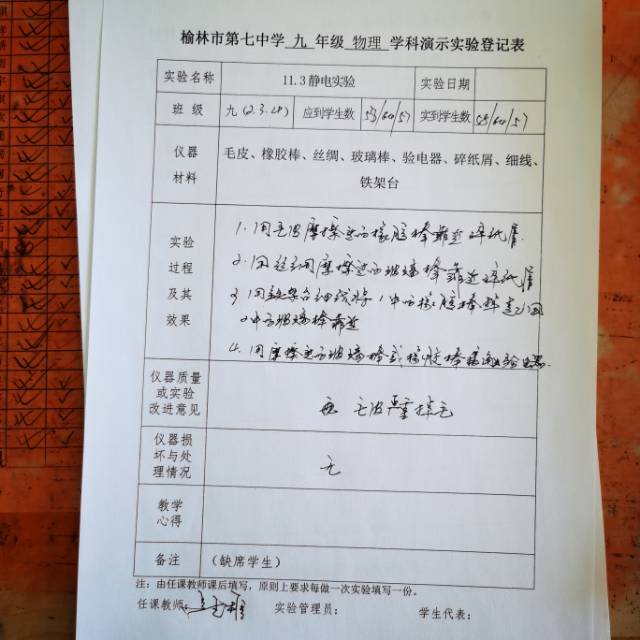 榆林市第七中学 九 年级 物理 学科演示实验登记表
实验名称 11.3静电实验 实验日期
班 级 九(2.3.4) 应到学生数 53/60/57 实到学生数 53/60/57
仪器 毛皮、橡胶棒、丝绸、玻璃棒、验电器、碎纸屑、细线、
材料 铁架台
实验 1.用毛皮摩擦过的橡胶棒靠近碎纸屑
过程 2.用丝绸摩擦过的玻璃棒靠近碎纸屑
及其 3.用铁架台细线将1中的橡胶棒 用
效果 2中的玻璃棒靠近
4.用摩擦过的玻璃棒或橡胶棒 验电器.
仪器质量
或实验 毛皮严重掉毛
改进意见
仪器损
坏与处 无
理情况
教学
心得
备注 (缺席学生)
注:由任课教师课后填写,原则上要求每做一次实验填写一份。
任课教师: 实验管理员: 学生代表: